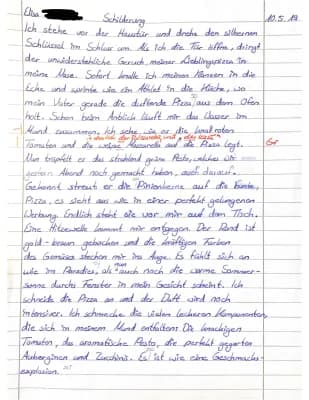 Elisa
Schilderung
10.5.19
Ich stehe vor der Haustür und drehe den silbernen
Schlüssel im Schloss um. Als ich die Tür öffne, dringt
der unwiderstehliche Geruch meiner Lieblingspizza in
meine Nase. Sofort knalle ich meinen Ranzen in die
Ecke und sprinte wie ein Athlet in die Küche, wo
mein Vater gerade die duftende Pizza aus dem Ofen
holt. Schon beim Anblick läuft mir das Wasser im
Mund zusammen. Ich sehe, wie er die knallroten
Tomaten und die weisse Mozzarella auf die Pizza legt.
Nun tröpfelt er das strahlend grüne Pesto, welches wir
gestern Abend noch gemacht haben, auch darauf.
Gekonnt streut er die Pinienkerne auf die bunte
Pizza, es sieht aus wie in einer perfekt gelungenen
Werbung. Endlich steht sie vor mir auf dem Tisch.
Eine Hitzewelle kommt mir entgegen. Der Rand ist
gold-braun gebacken und die kräftigen Farben
des Gemüses stechen mir ins Auge. Es fühlt sich an
wie im Paradies, als auch noch die warme Sommer-
sonne durchs Fenster in mein Gesicht scheint. Ich
schneide die Pizza an und der Duft wird noch
intensiver. Ich schmecke die vielen leckeren Komponenten,
die sich in meinem Mund entfalten: Die knackigen
Tomaten, das aromatische Pesto, die perfekt gegarten
Auberginen und Zucchinis. Es ist wie eine Geschmacks-
explosion.